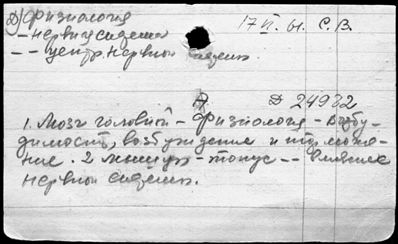 Д) Физиология
17 VI. 61. С. В.
– нервн. система
– – центр. нервной систем.
Д 24982
1. Мозг головной – Физиология – возбу-
димость, возбуждение и торможе-
ние. 2. Мышцы – тонус – – влияние
нервной систем.